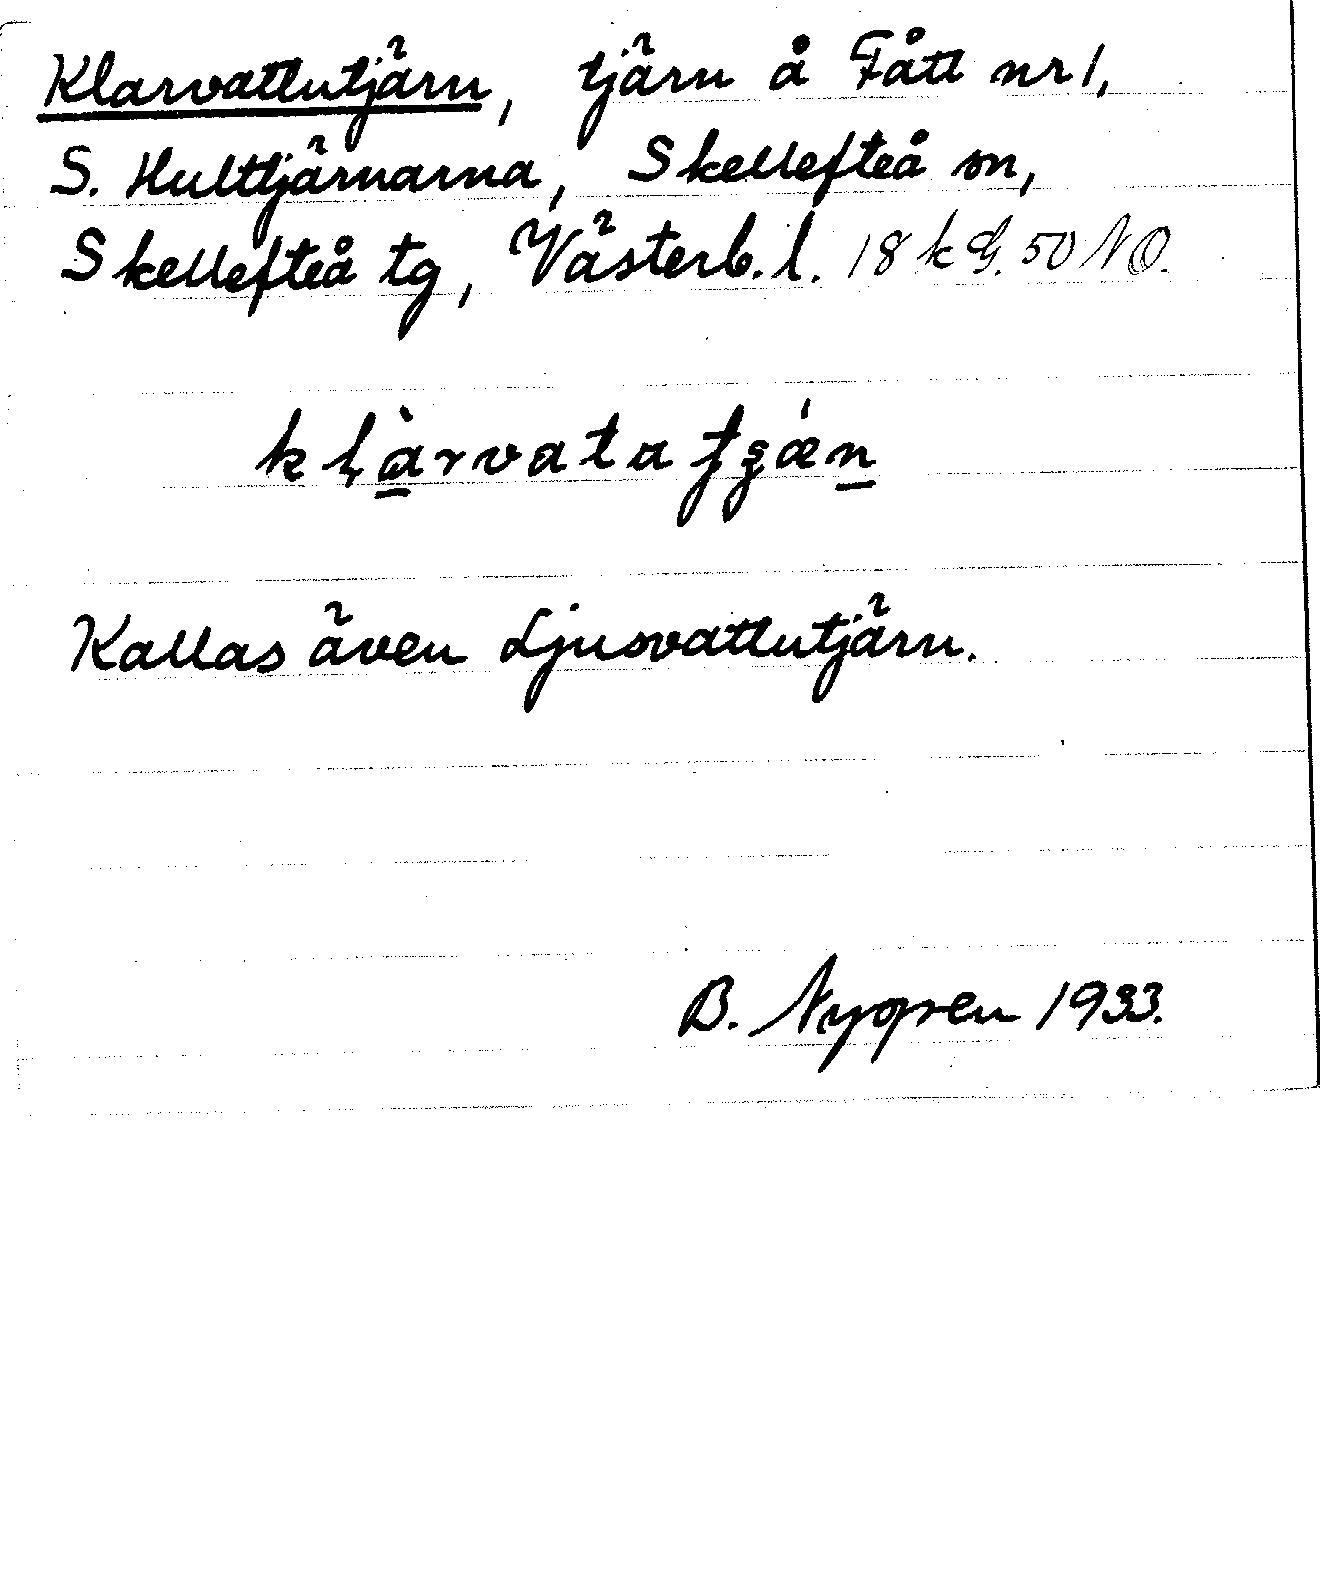 Klarvattutjärn, tjärn å Fått nr 1,
S. Hulttjärnarna, Skellefteå sn,
Skellefteå tg, Västerb. l. 18 k G. 50 NO.
klàrvata tʒǽn
Kallas även Ljusvattutjärn.
B. Nygren 1933.